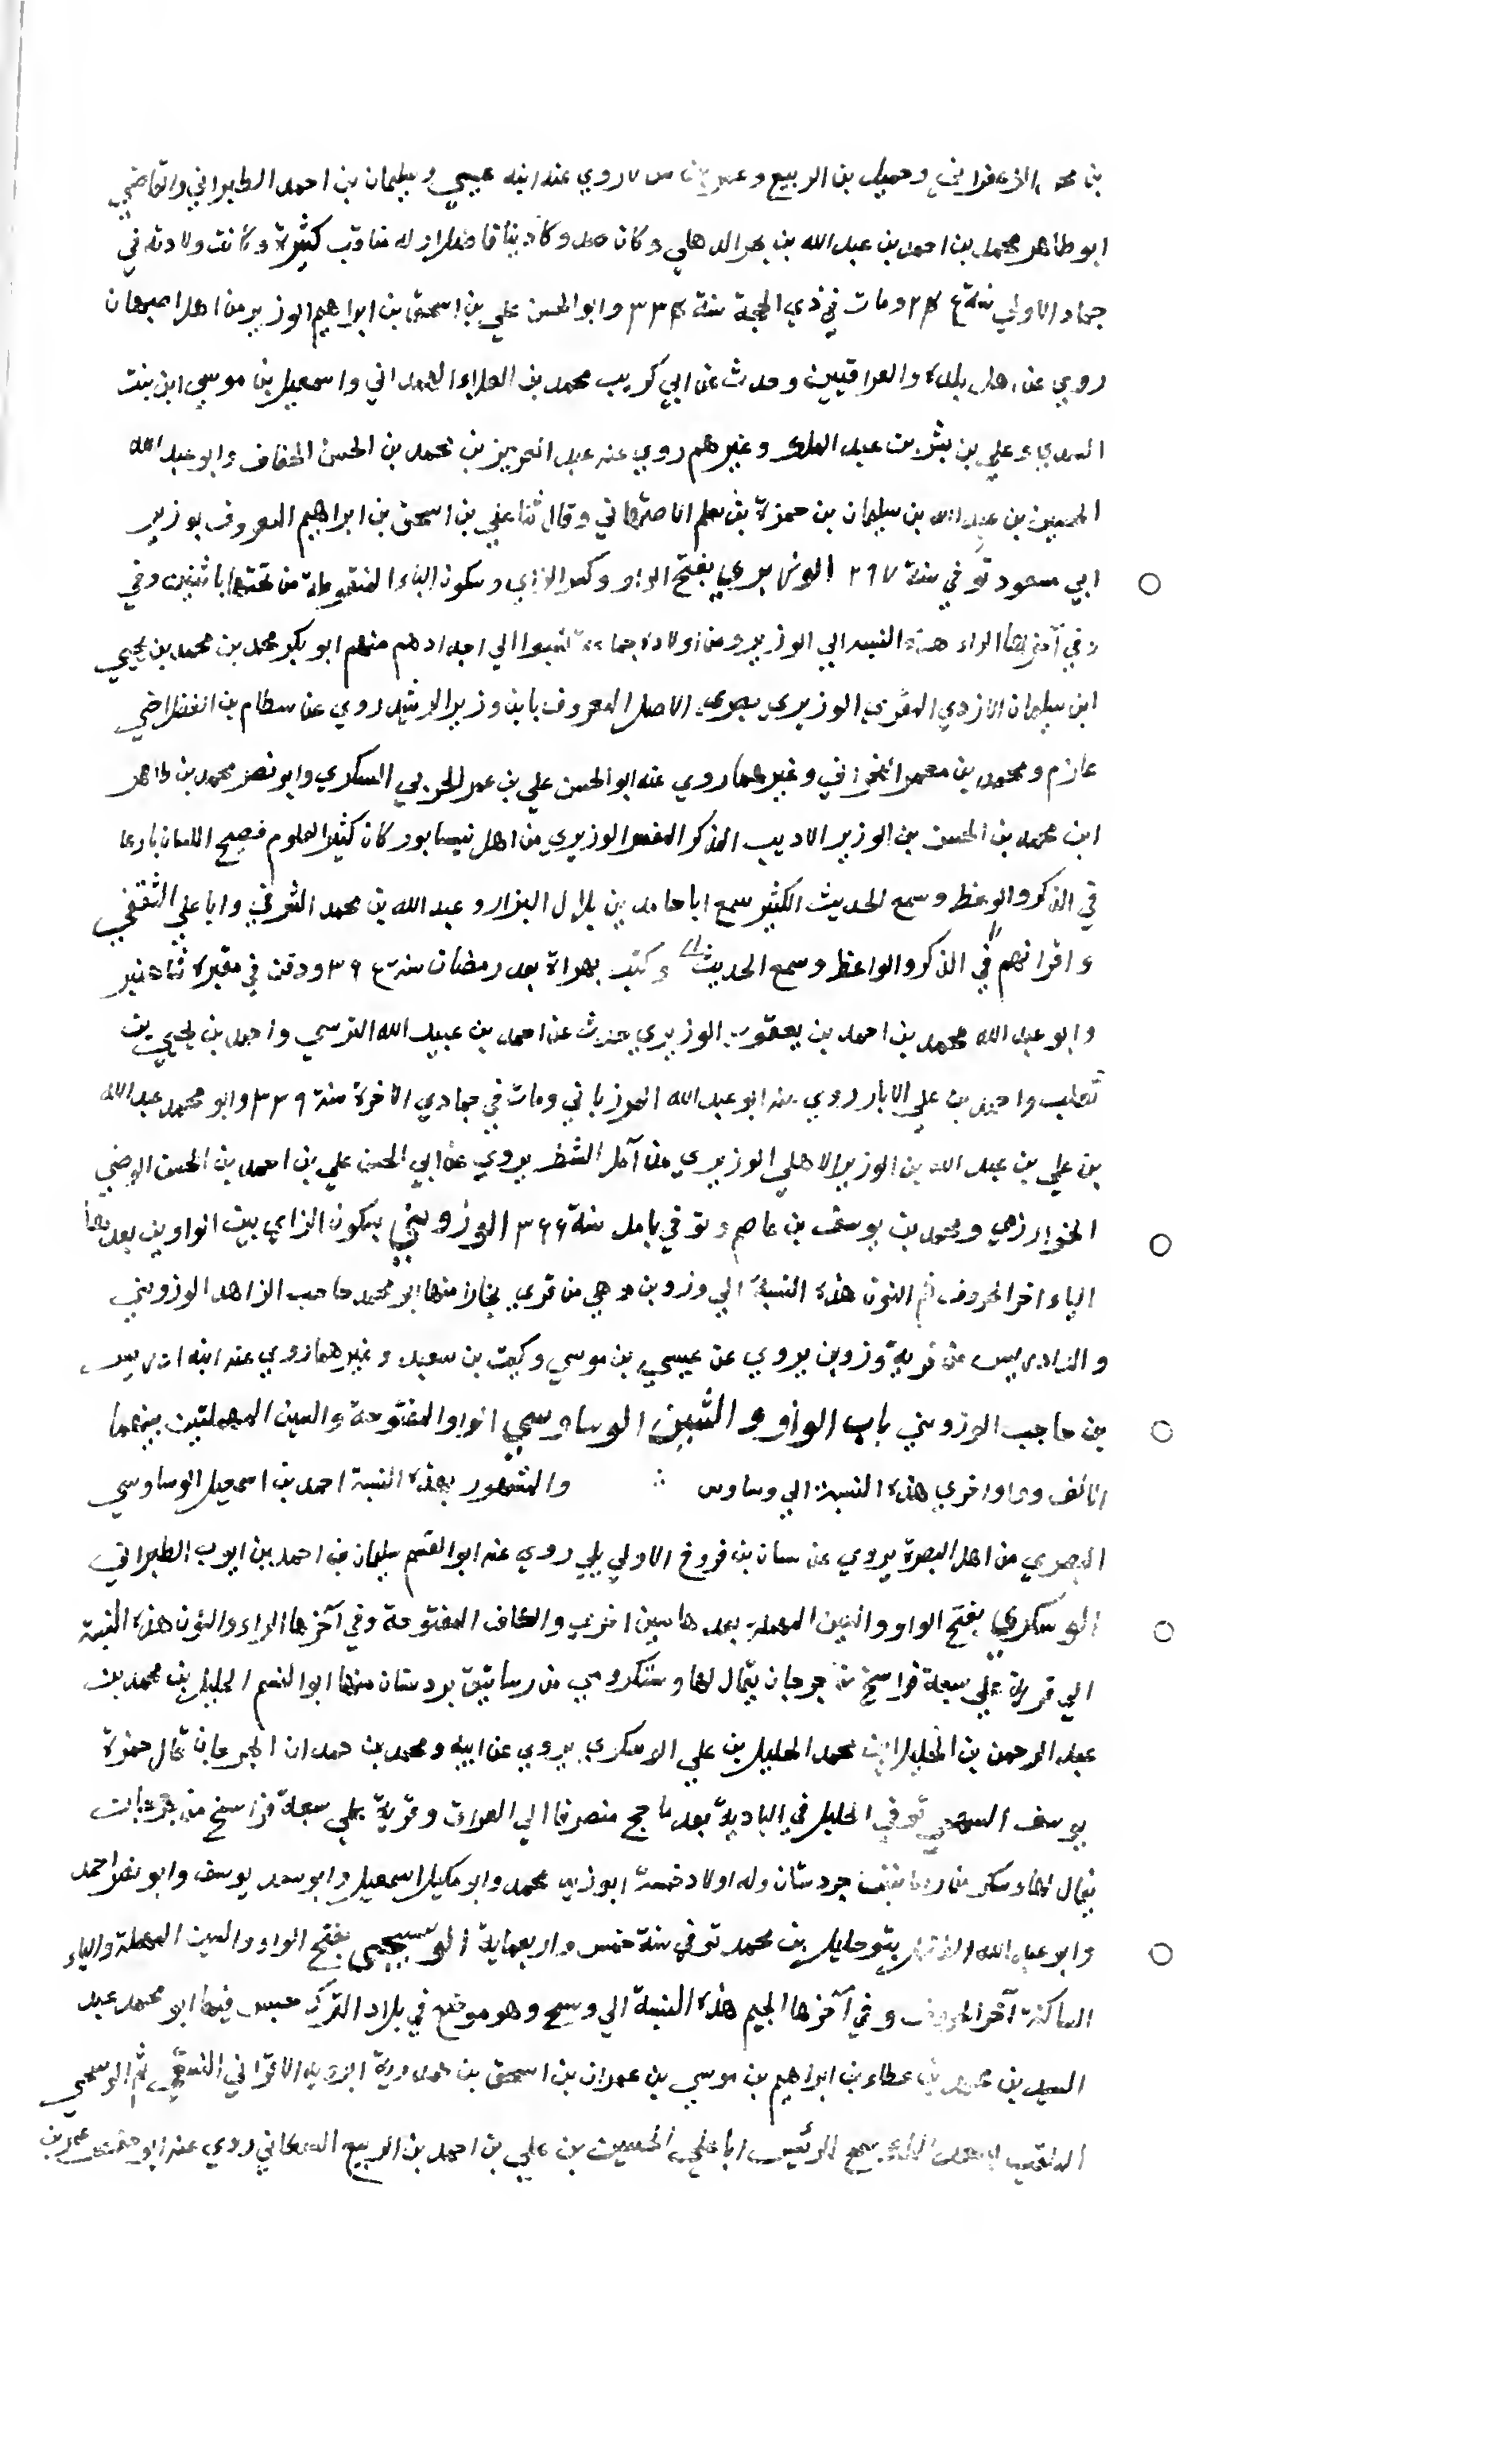 بن محمد الزعفراني وجميل بن الربيع وعمر بن روي عنه ابنه عيسي وسليمان بن احمد الطبراني والقاضي
ابو طاهر محمد بن احمد بن عبد الله بن بحر الدهلي وكان وكان دينا فاضلا وله مناقب كثيرة وكانت ولادته في
جماد الاولي سنة ومات في ذي الحجة سنة وابو الحسن علي بن اسحق بن ابراهيم الوزير من اهل اصبهان
روي عن اهل بلده والعراقيين وحدث عن ابي كريب محمد بن العلاء الهمداني واسمعيل بن موسي ابن بنت
السدي وعلي بن بشر بن عبد الملك وغيرهم روي عنه عبد العزيز بن محمد بن الحسن الخفاف وابو عبد الله
الحسين بن عبد الله بن سليمان بن حمزة بن معلم الاصبهاني وقال ثنا علي بن اسحق بن ابراهيم المعروف بوزير
ابي مسعود توفي سنة ٢٩٧ الوزيري بفتح الواو وكسر الزاي وسكون الياء المنقوطة من تحتها باثنين وفي
وفي آخرها الراء هذه النسبه الي الوزير ومن اولاده جماعة نسبوا الي اجدادهم منهم ابو بكر محمد بن محمد بن يحيي
ابن سليمان الازدي المقري الوزيري بصري الاصل المعروف بابن وزير الرشيد روي عن بسطام بن الفضل اخي
عازم ومحمد بن معمر البحراني وغيرهما روي عنه ابو الحسن علي بن عمر الحربي السكري وابو نصر محمد بن طاهر
ابن محمد بن الحسن بن الوزير الاديب المذكر المفسر الوزيري من اهل نيسابور كان كثير العلوم فصيح اللسان بارعا
في الذكر والوعظ وسمع الحديث الكثير سمع ابا حامد بن بلال البزار وعبد الله بن محمد الشرقي وابا علي الثقفي
واقرانهم في الذكر والواعظ وسمع الحديث وكتب بهراة بعد رمضان سنة ودفن في مقبرة شاهنبر
وابو عبد الله محمد بن احمد بن يعقوب الوزيري حدث عن احمد بن عبيد الله النرسي واحمد بن يحيي بن
ثعلب واحمد بن علي الابار روي عنه ابو عبد الله المرزباني ومات في جمادي الاخرة سنة ٣٣٩ وابو محمد عبد الله
بن علي بن عبد الله بن الوزير الاهلي الوزيري من آمل الشط يروي عن ابي الحسن علي بن احمد بن الحسن الرضي
الخوارزمي ومحمد بن يوسف بن عاصم وتوفي بامل سنة ٣٦٦ الوزويني بسكون الزاي بين الواوين بعدهما
الياء اخر الحروف ثم النون هذه النسبة الي وزوين وهي من قري بخارا منها ابو محمد حاجب الزاهد الوزويني
من قرية وزوين يروي عن عيسي بن موسي وكعب بن سعيد وغيرهما روي عنه ابنه
بن حاجب الوزويني باب الواو والشين الوساوسي الواو المفتوحة والسين المهملتين بينهما
الالف وواو اخري هذه النسبة الي وساوس والمشهور بهذه النسبة احمد بن اسمعيل الوساوسي
البصري من اهل البصرة يروي عن شيبان بن فروخ الاولي يلي روي عنه ابو القسم سليمان بن احمد بن ايوب الطبراني
الوسكري بفتح الواو والسين المهملة بعدها سين اخري والكاف المفتوحة وفي آخرها الراء والنون هذه النسبة
الي قرية علي سبعة فراسخ من جرجان يقال لها وسكر وهي من رساتيق بردستان منها ابو القسم الخليل بن محمد بن
عبد الرحمن بن الخليل بن محمد الخليل بن علي الوسكري يروي عن ابيه ومحمد بن حمدان الجرجان قال حمزة
يوسف السهمي توفي الخليل في البادية بعد ما حج منصرفا الي العراق وقرية علي سبعة فراسخ من جرجان
يقال لها وسكر من رساتيق جردستان وله اولاد خمسة ابو زيد محمد والاكليل اسمعيل وابو سعد يوسف وابو نصر احمد
وابو عبد الله بنو خليل بن محمد توفي سنة خمس واربعماية الوسيجي بفتح الواو والسين المهملة والياء
الساكنة آخر الحروف وفي آخرها الجيم هذه النسبة الي وسيج وهو موضع في بلاد الترك حبس فيها ابو محمد عبد
السيد بن محمد بن عطاء بن ابراهيم بن موسي بن عمران بن اسحق بن الافراني النسفي ثم الوسيجي
الملقب سمع الرئيس ابا علي الحسين بن علي بن احمد بن الربيع روي عنه ابو حفص عمر بن